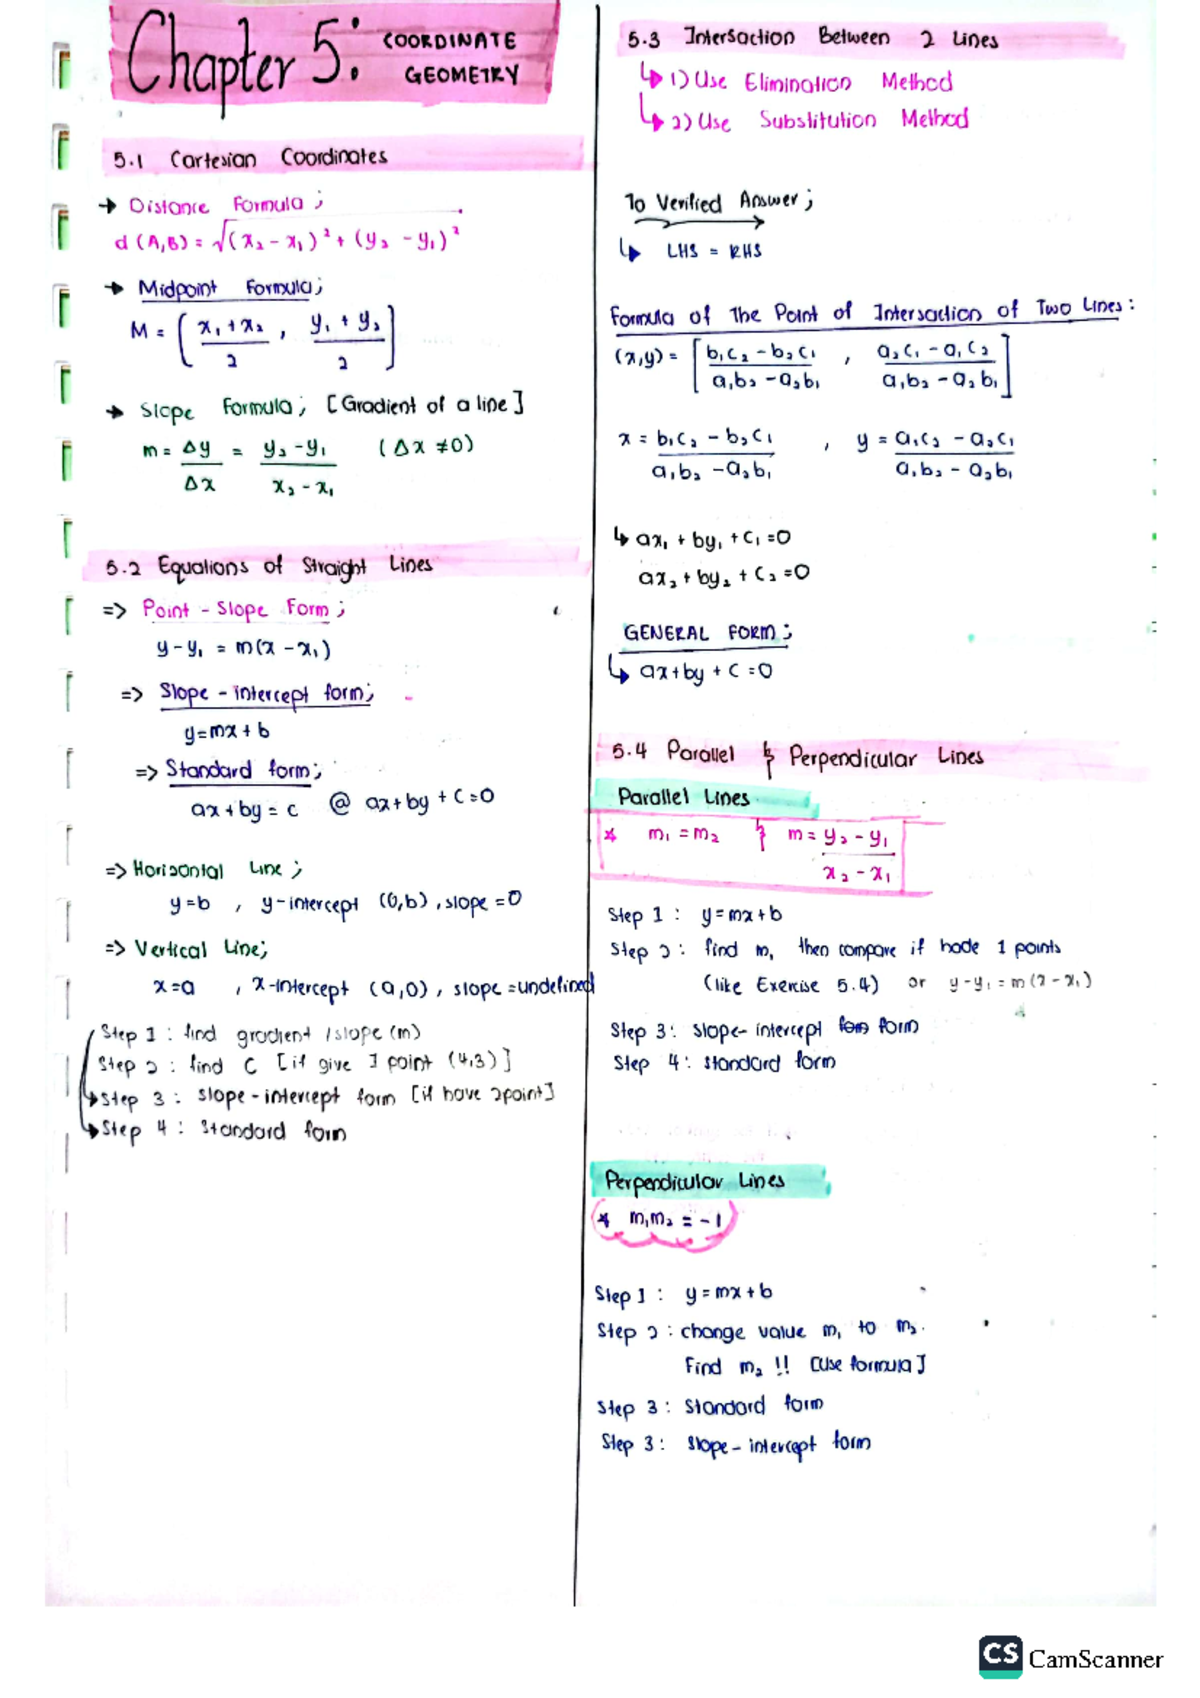 Chapter 5: COORDINATE GEOMETRY
5.1 Cartesian Coordinates
→ Distance Formula ;
d (A,B) = √(x₂ - x₁)² + (y₂ - y₁)²
→ Midpoint Formula;
M = ( x₁ + x₂ / 2 , y₁ + y₂ / 2 ]
→ Slope Formula; [Gradient of a line]
m = Δy / Δx = y₂ - y₁ / x₂ - x₁ (Δx ≠ 0)
5.2 Equations of Straight Lines
=> Point - Slope Form ;
y - y₁ = m(x - x₁)
=> Slope - intercept form;
y = mx + b
=> Standard form;
ax + by = c @ ax + by + c = 0
=> Horizontal Line ;
y = b , y-intercept (0,b) , slope = 0
=> Vertical Line;
x = a , x-intercept (a,0) , slope = undefined
Step 1 : find gradient / slope (m)
Step 2 : find C [if give 1 point (4,3)]
Step 3 : slope - intercept form [if have 2point]
Step 4 : Standard form
5.3 Intersaction Between 2 Lines
↳ 1) Use Elimination Method
↳ 2) Use Substitution Method
To Verified Answer ;
↳ LHS = RHS
Formula of The Point of Intersaction of Two Lines :
(x,y) = [ b₁c₂ - b₂c₁ / a₁b₂ - a₂b₁ , a₂c₁ - a₁c₂ / a₁b₂ - a₂b₁ ]
x = b₁c₂ - b₂c₁ / a₁b₂ - a₂b₁ , y = a₁c₂ - a₂c₁ / a₁b₂ - a₂b₁
↳ ax₁ + by₁ + c₁ = 0
ax₂ + by₂ + c₂ = 0
GENERAL FORM ;
↳ ax + by + c = 0
5.4 Parallel & Perpendicular Lines
Parallel Lines
* m₁ = m₂ & m = y₂ - y₁ / x₂ - x₁
Step 1 : y = mx + b
Step 2 : find m, then compare if hade 1 points
(like Exercise 5.4) or y - y₁ = m (x - x₁)
Step 3 : slope - intercept form
Step 4 : standard form
Perpendicular Lines
* m₁m₂ = -1
Step 1 : y = mx + b
Step 2 : change value m₁ to m₂.
Find m₂ !! [Use formula]
Step 3 : Standard form
Step 3 : slope - intercept form
CS CamScanner